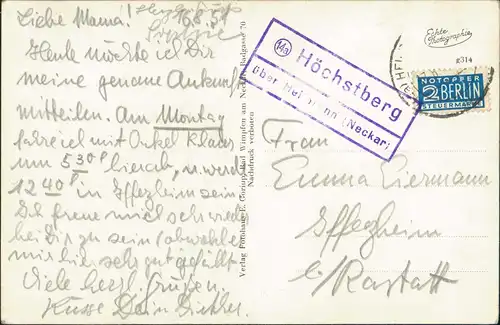 Liebe Mama! 16.8.51
Heute möchte ich Dir
meine genaue Ankunft
mitteilen. Am Montag
fahre ich mit Onkel Klaus
um 5 30 hierab, u. werde
12 40 in Iffezheim sein.
Ich freue mich sehr wieder
bei Dir zu sein, obwohl es
mir hier sehr gut gefällt.
Viele herzl. Grüße u.
Küsse Dein Dieter.
Verlag Fotohaus E. Bad Wimpfen am Neckar, Badgasse 70
Nachdruck verboten
14a Höchstberg
über Heilbronn (Neckar)
Echte
Photographie
g314
NOTOPFER
2 BERLIN
STEUERMARKE
Frau
Emma Eiermann
Iffezheim
b/Rastatt